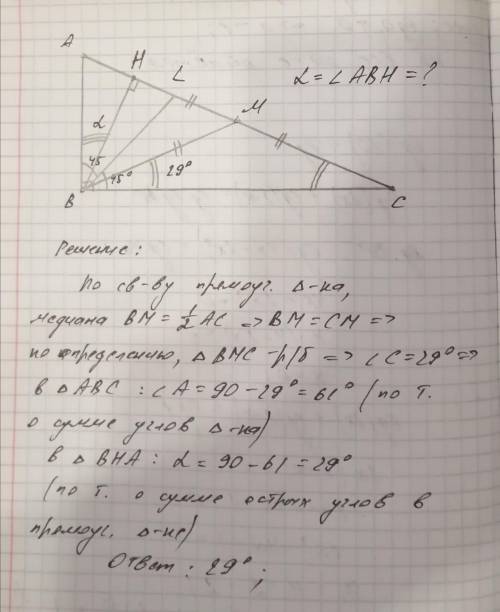 A
H
L
α = ∠ABH = ?
M
α
45
45°
29°
B
C
Решение:
По св-ву прямоуг. Δ-ка,
медиана BM = 1/2 AC => BM = CM =>
по определению, Δ BMC - р/б => ∠C = 29° =>
в Δ ABC : ∠A = 90 - 29° = 61° (по т.
о сумме углов Δ-ка)
в Δ BHA : α = 90 - 61 = 29°
(по т. о сумме острых углов в
прямоуг. Δ-ке)
Ответ : 29° ;